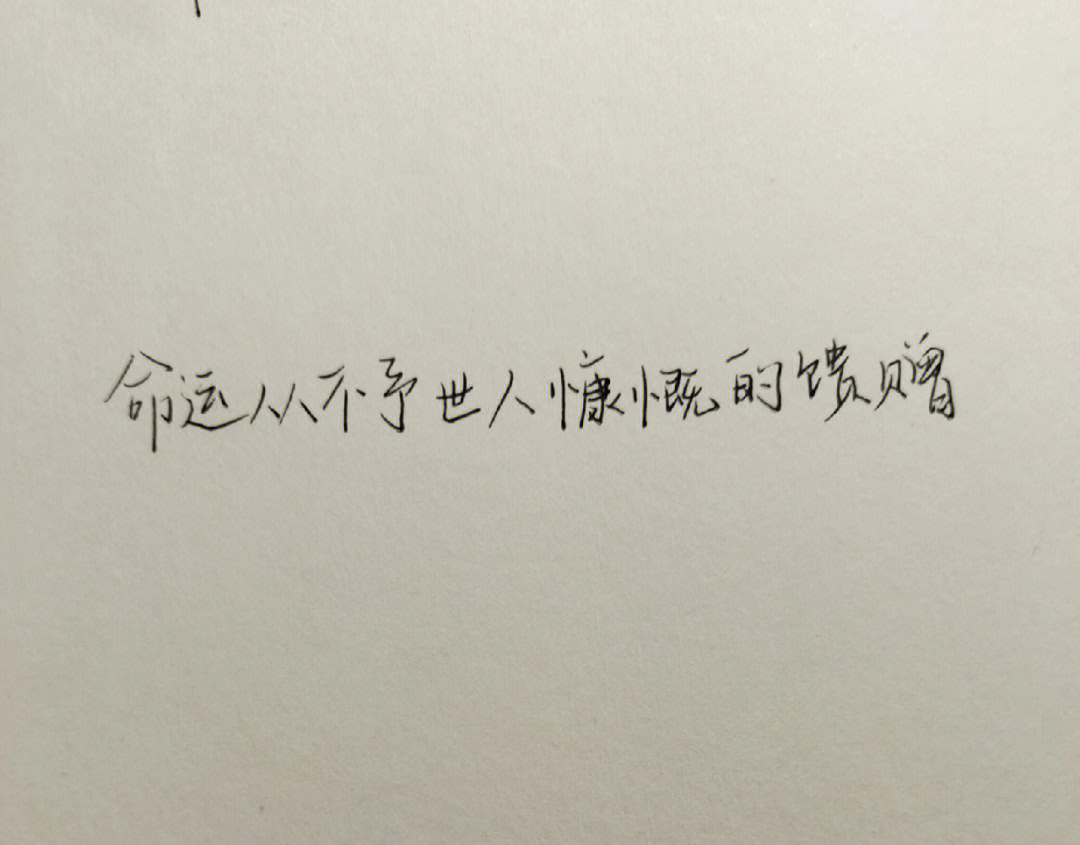 命运从不予世人慷慨的馈赠